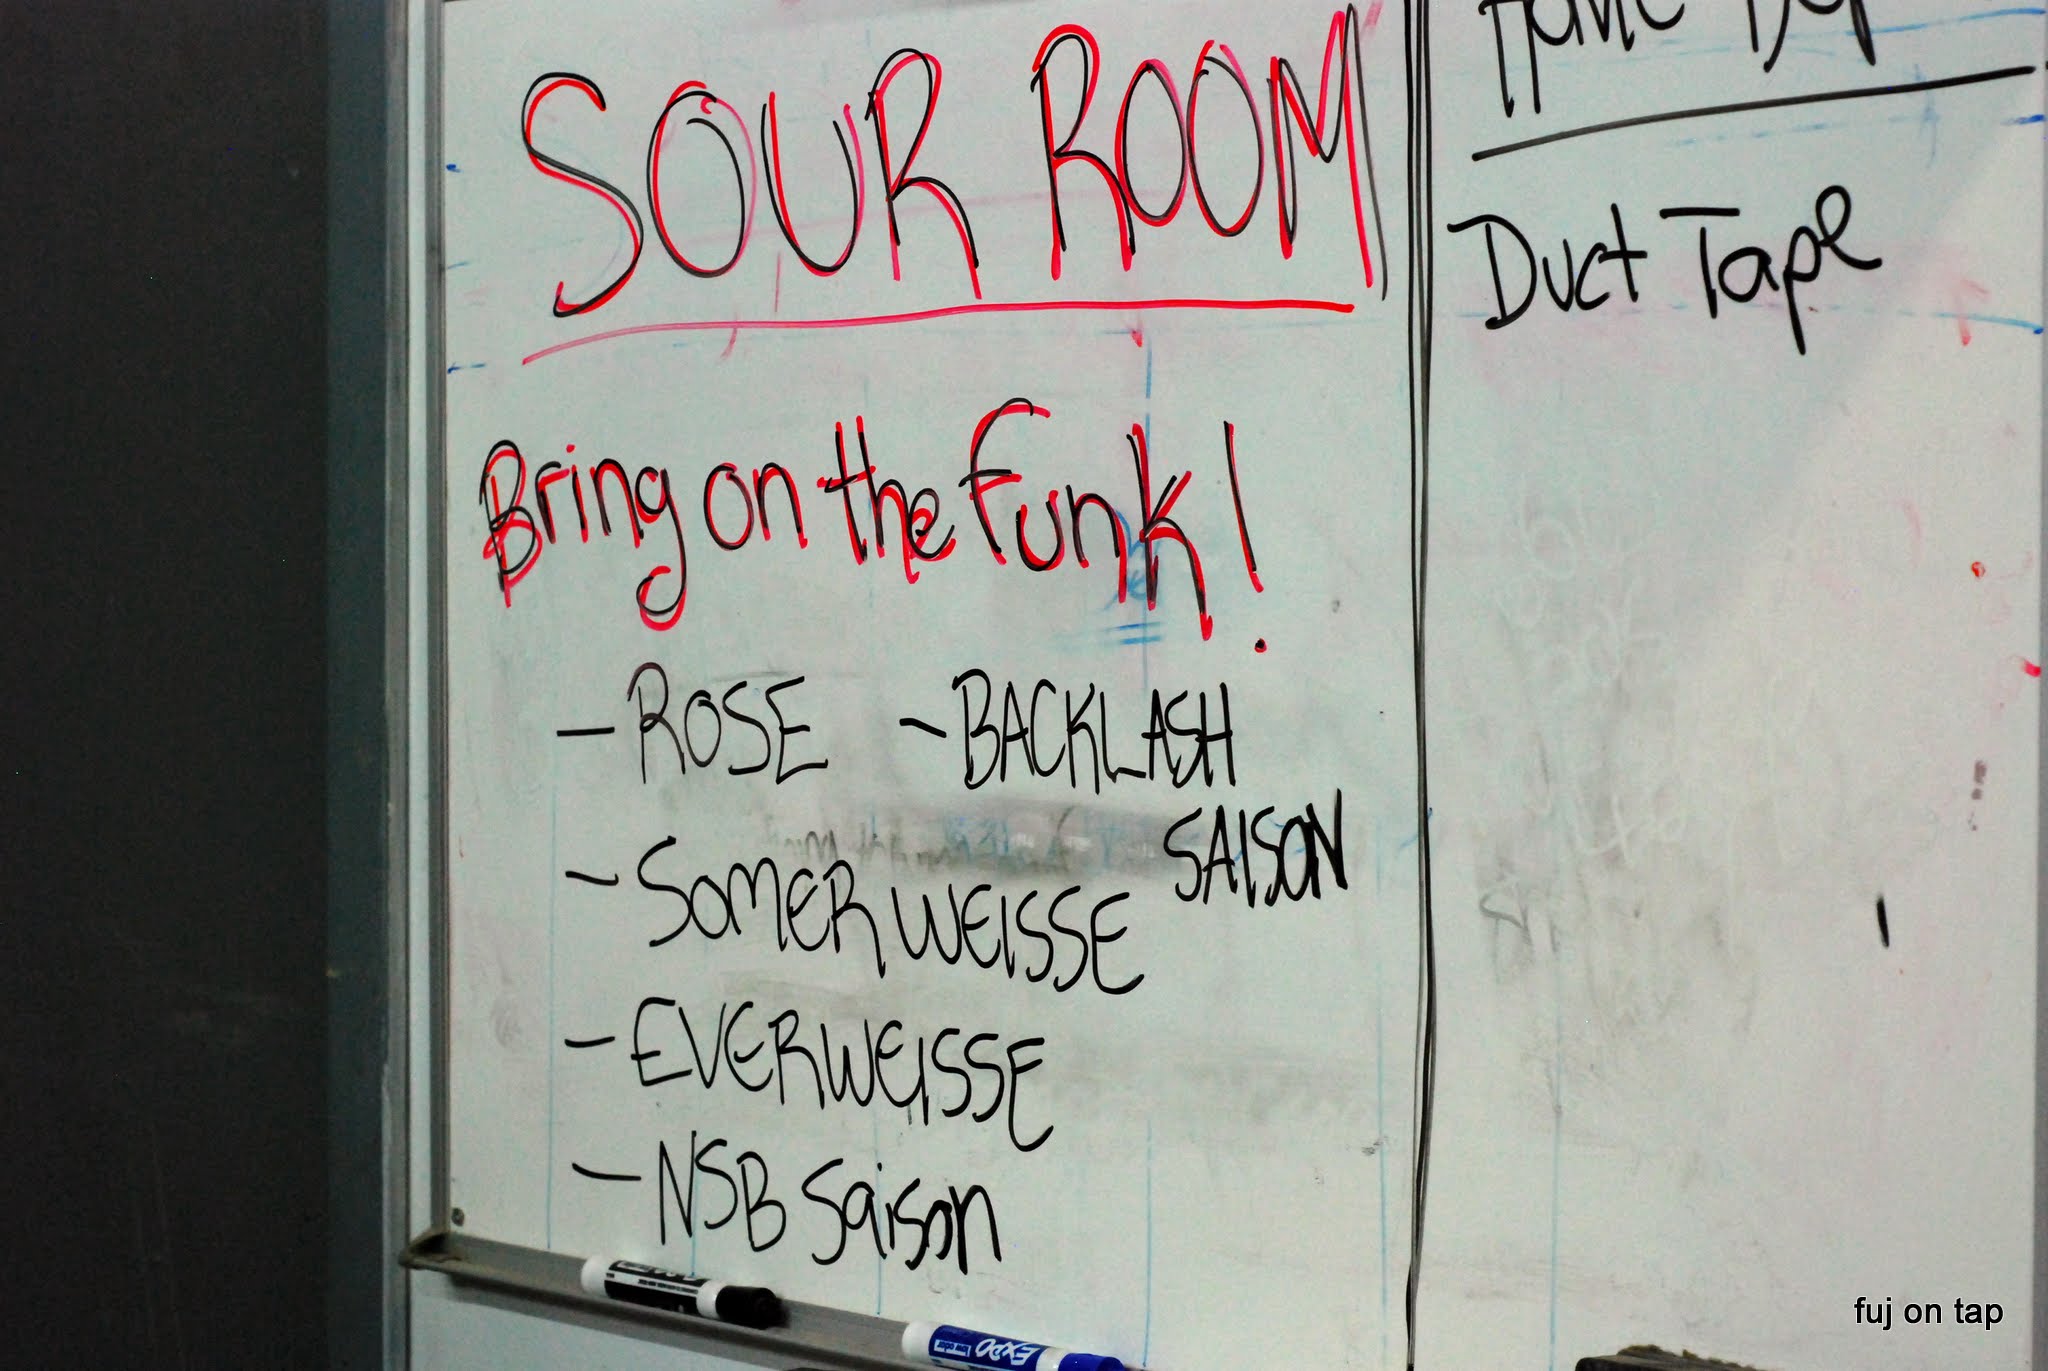 SOUR ROOM
Bring on the Funk!
- ROSE - BACKLASH
SAISON
- SOMERWEISSE
- EVERWEISSE
- NSB Saison
Duct Tape
EXPO
fuj on tap